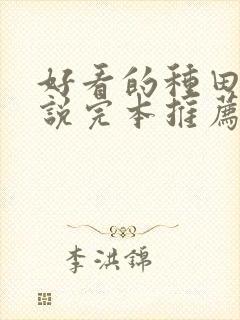 好看的種田
說完本推薦
李洪錦